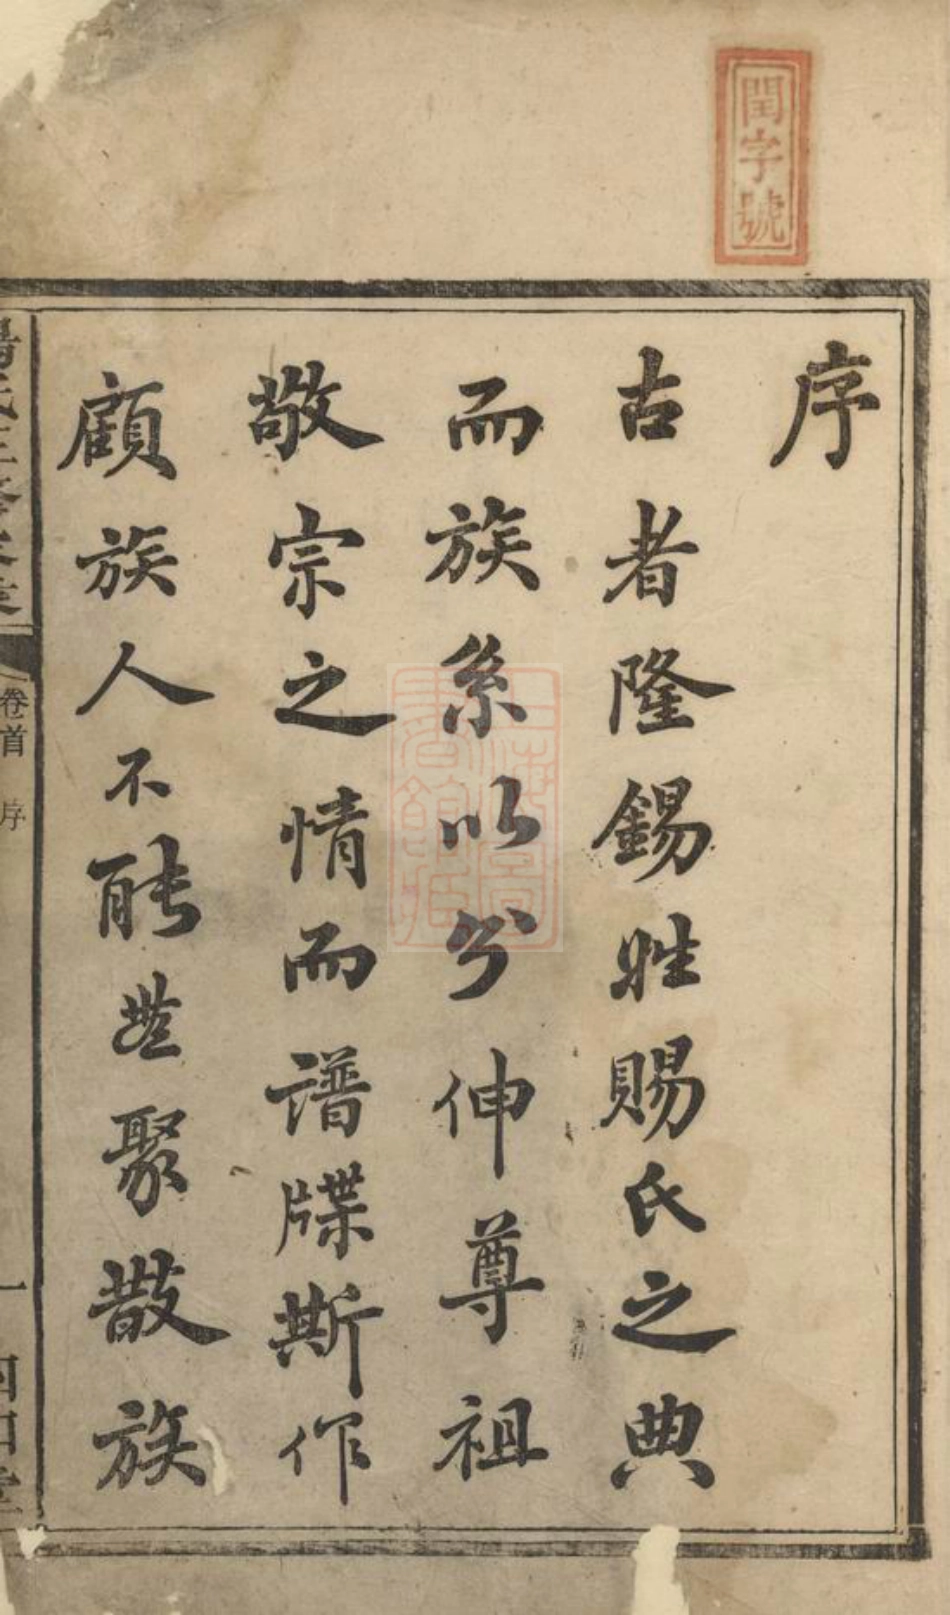 閏字號
序
古者隆錫姓賜氏之典
而族系以分伸尊祖
敬宗之情而譜牒斯作
顧族人不能無聚散族
卷首 序
一